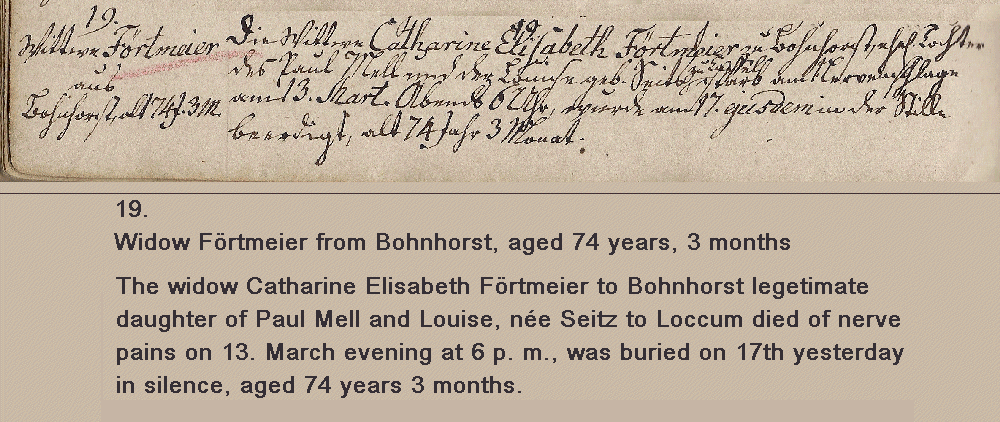 19.
Wittwe Förtmeier
aus
Bohnhorst, alt 74 J. 3 M.
Die Wittwe Catharine Elisabeth Förtmeier zu Bohnhorst, ehel. Tochter
des Paul Mell und der Louise geb. Seitz starb am Nervenschlage
am 13. Mart. Abends 6 Uhr, wurde am 17. ejusdem in der Stille
beerdigt, alt 74 Jahr 3 Monat.
19.
Widow Förtmeier from Bohnhorst, aged 74 years, 3 months
The widow Catharine Elisabeth Förtmeier to Bohnhorst legetimate
daughter of Paul Mell and Louise, née Seitz to Loccum died of nerve
pains on 13. March evening at 6 p. m., was buried on 17th yesterday
in silence, aged 74 years 3 months.